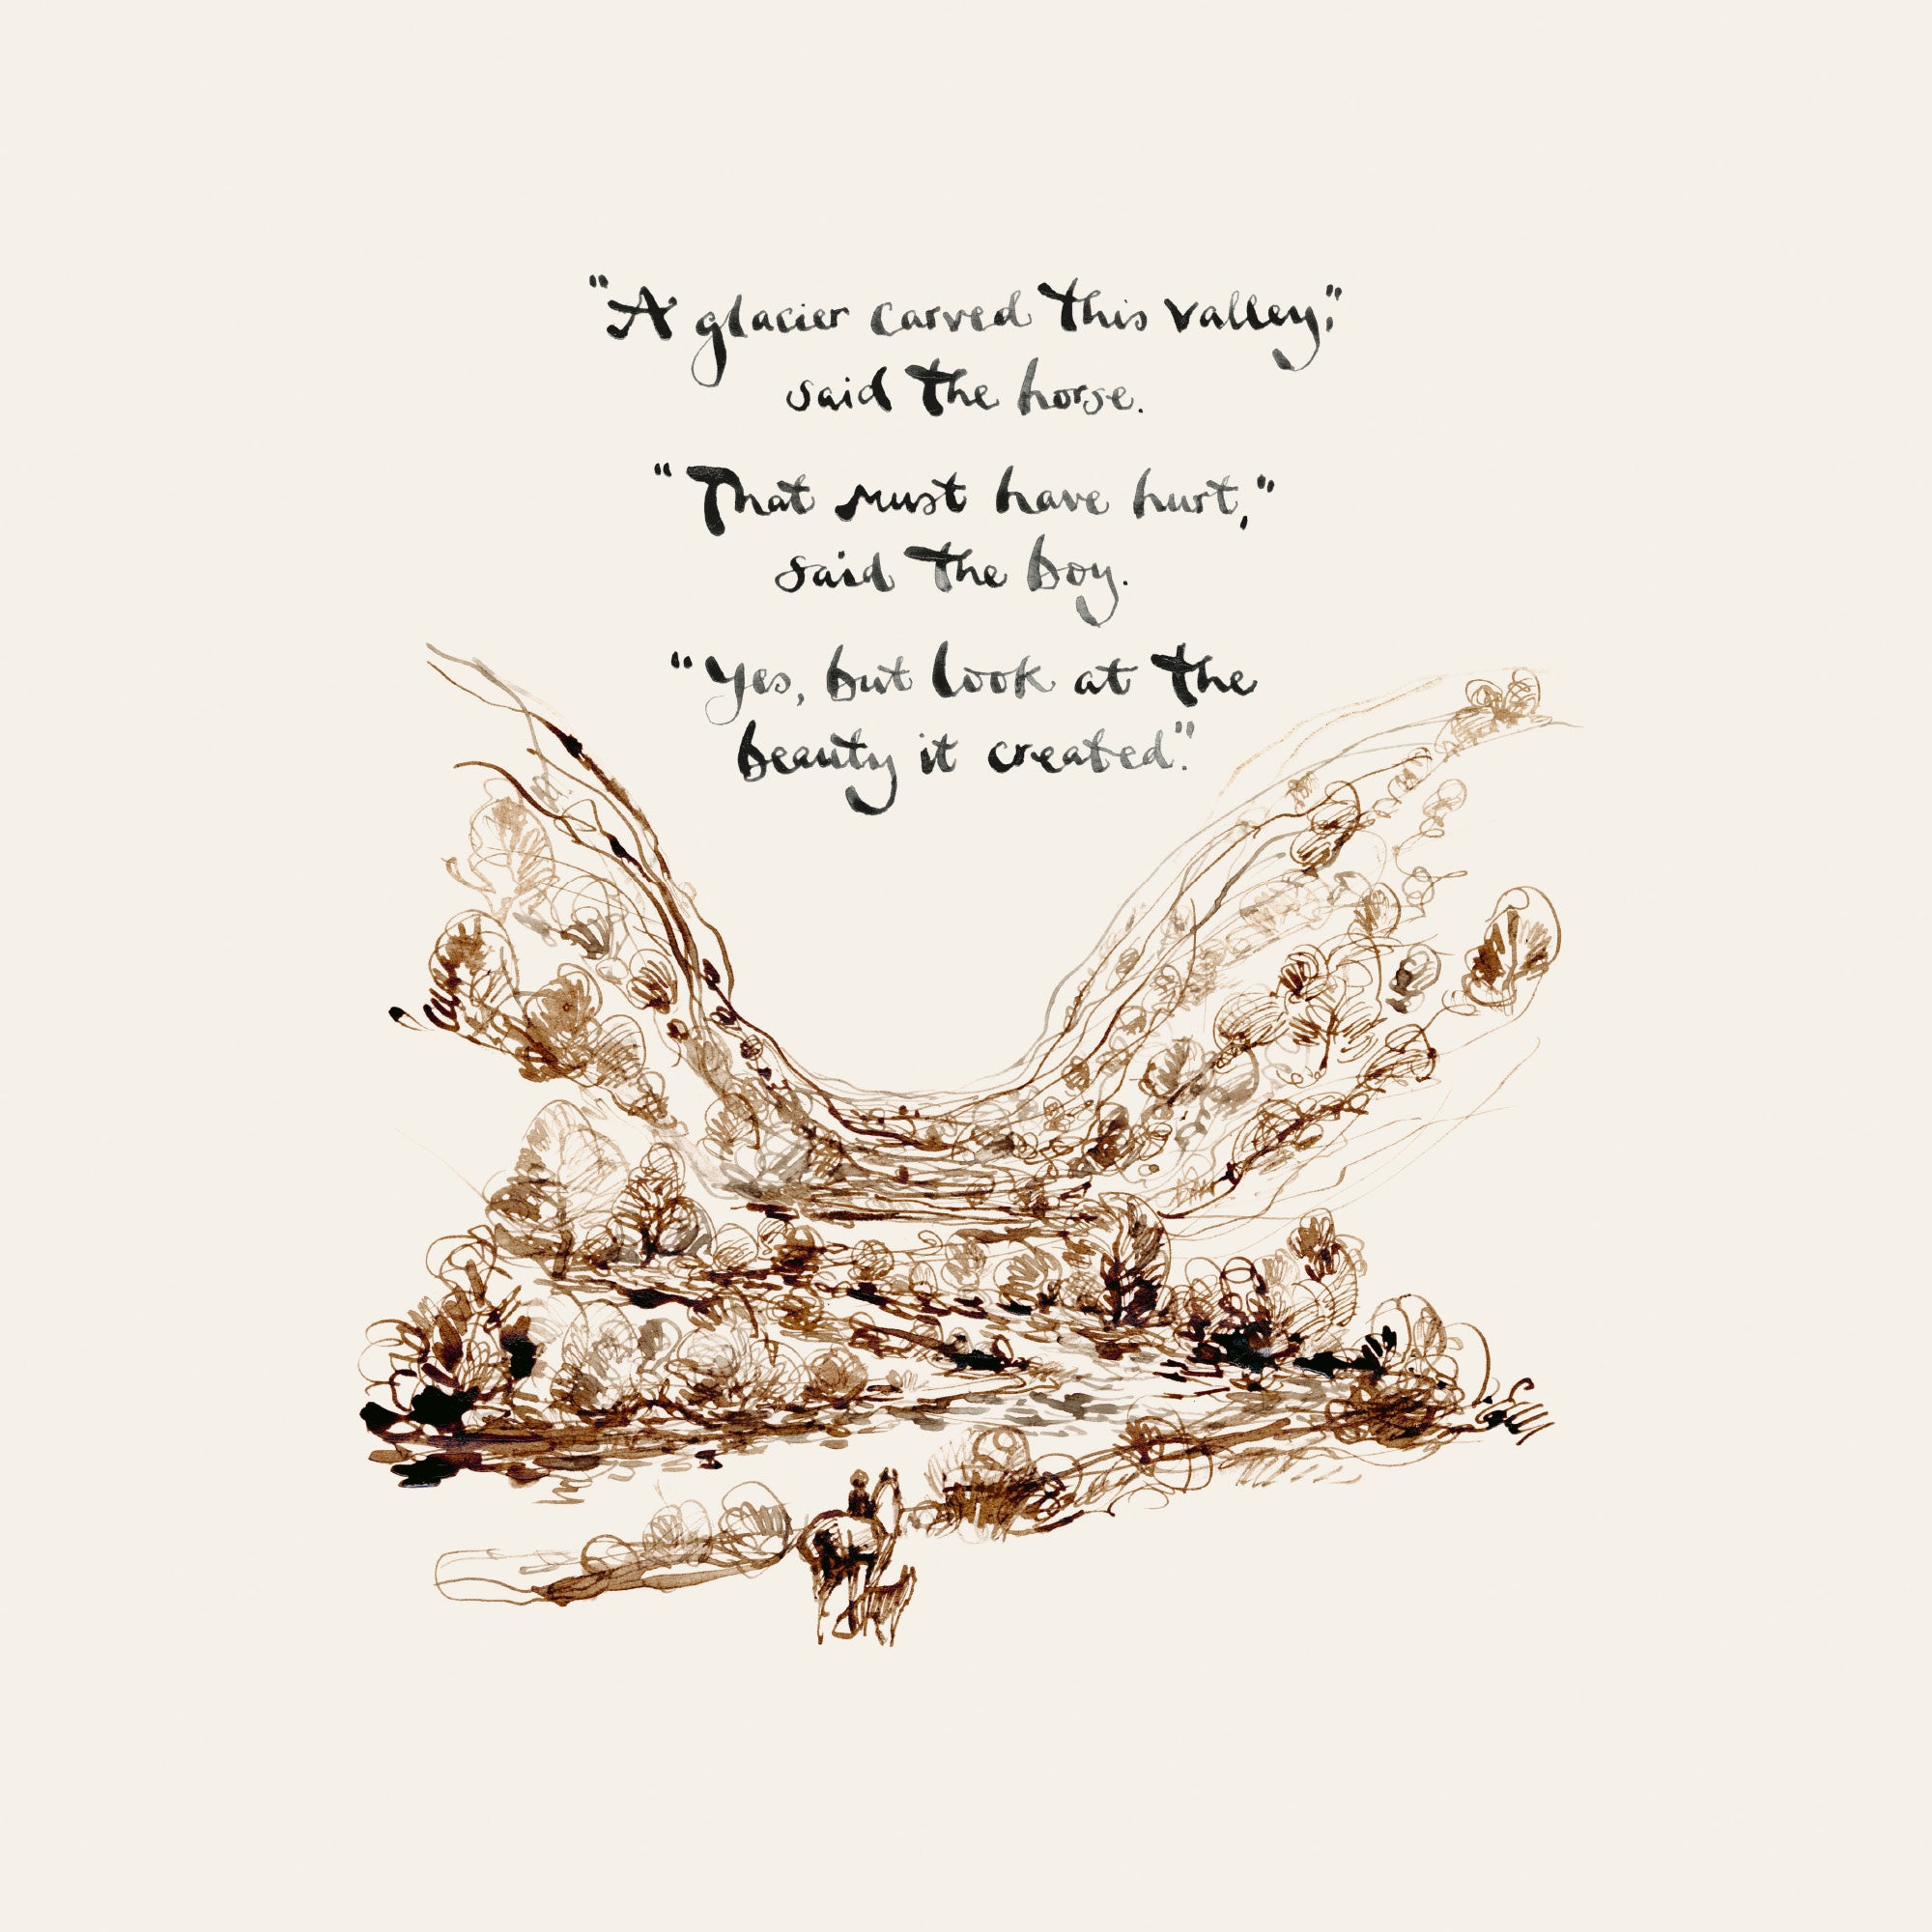 "A glacier carved this valley,"
said the horse.
"That must have hurt,"
said the boy.
"Yes, but look at the
beauty it created."